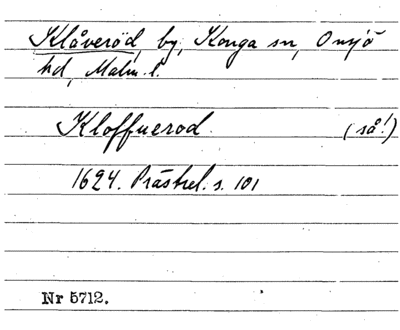 Klåveröd, by, Konga sn, Onsjö
hd, Malm. l.
Kloffuerod (så!)
1624. Prästrel. s. 101
Nr 5712.